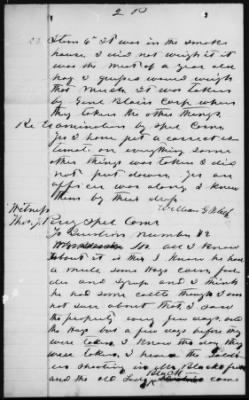 2 R
Item 6th It was in the smoke
house, I did not weigh it it
was the meat of a year old
hog I guessed would weigh
that much. It was taken
by Genl Blairs Corp when
they taken the other things.
Re Examination by Spel Comr
Yes I have put a correct es
timate on everything some
other things was taken I did
not put down. Yes an
officer was along I knew
them by their dress
William G
Witness
Thos. J. by Spel Comr
To Question Number 42
all I know
about it is this I know he had
a mule some Hogs corn fod
der and syrup and I think
he had some cattle though I am
not sure about that, I saw
the property only few days
the Hogs but a few days before they
were taken, I know the day they
were taken, I heard the Sold
iers shooting in Mr Blacks field
Black
and the old Lady come